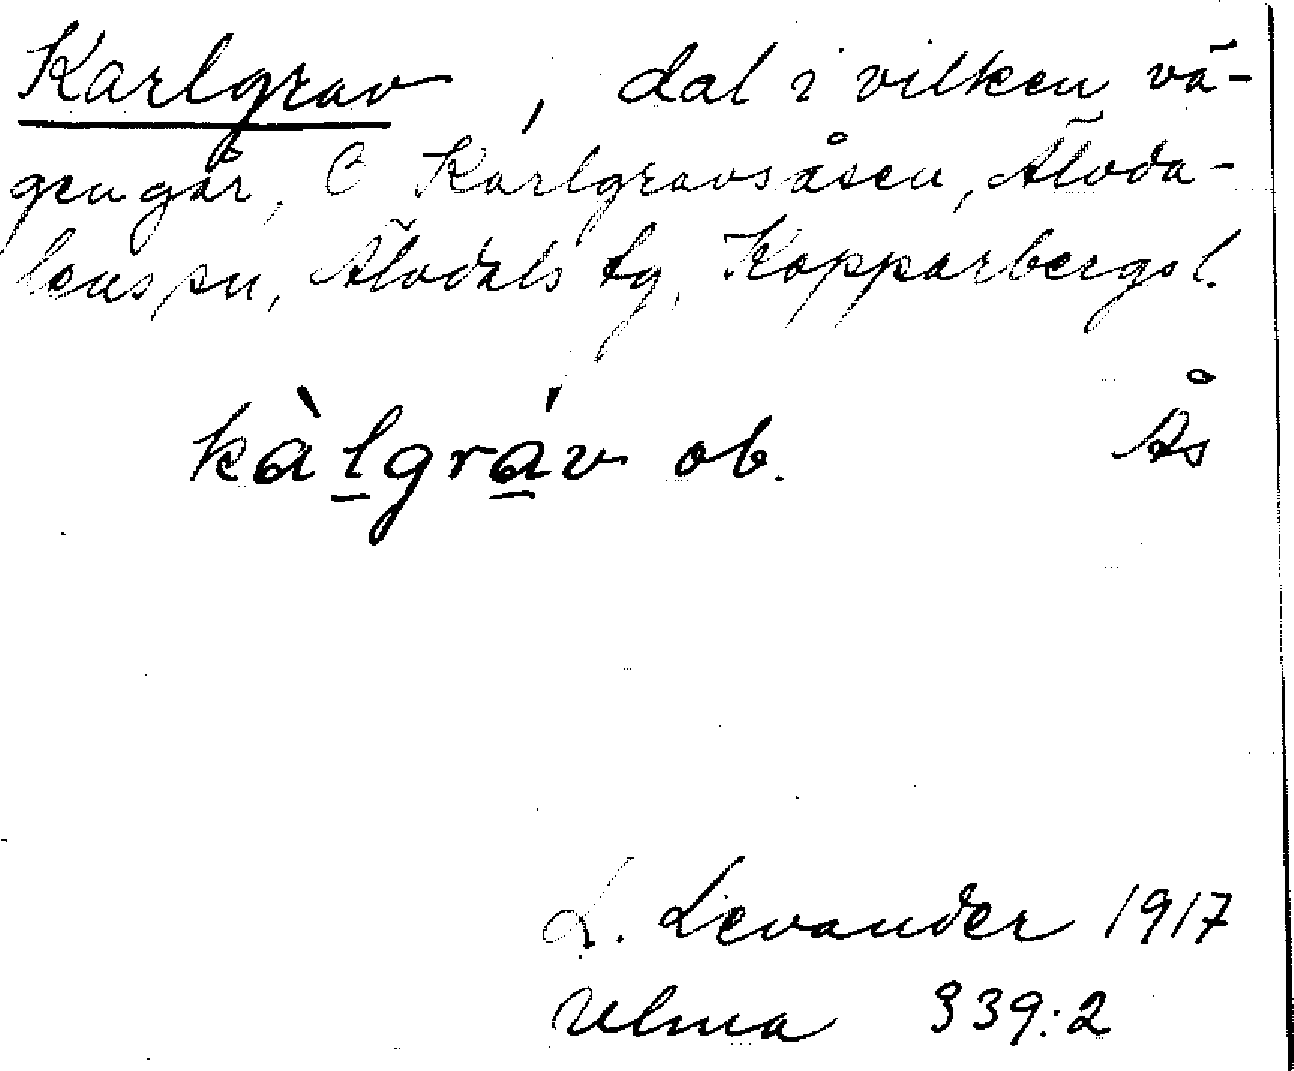 Karlgrav, dal i vilken vä-
gen går, O Karlgravsåsen, Älvda-
lens sn, Älvdals tg, Kopparbergs l.
kàl̠grá̠v ob. Ås
L. Levander 1917
Ulma 339:2